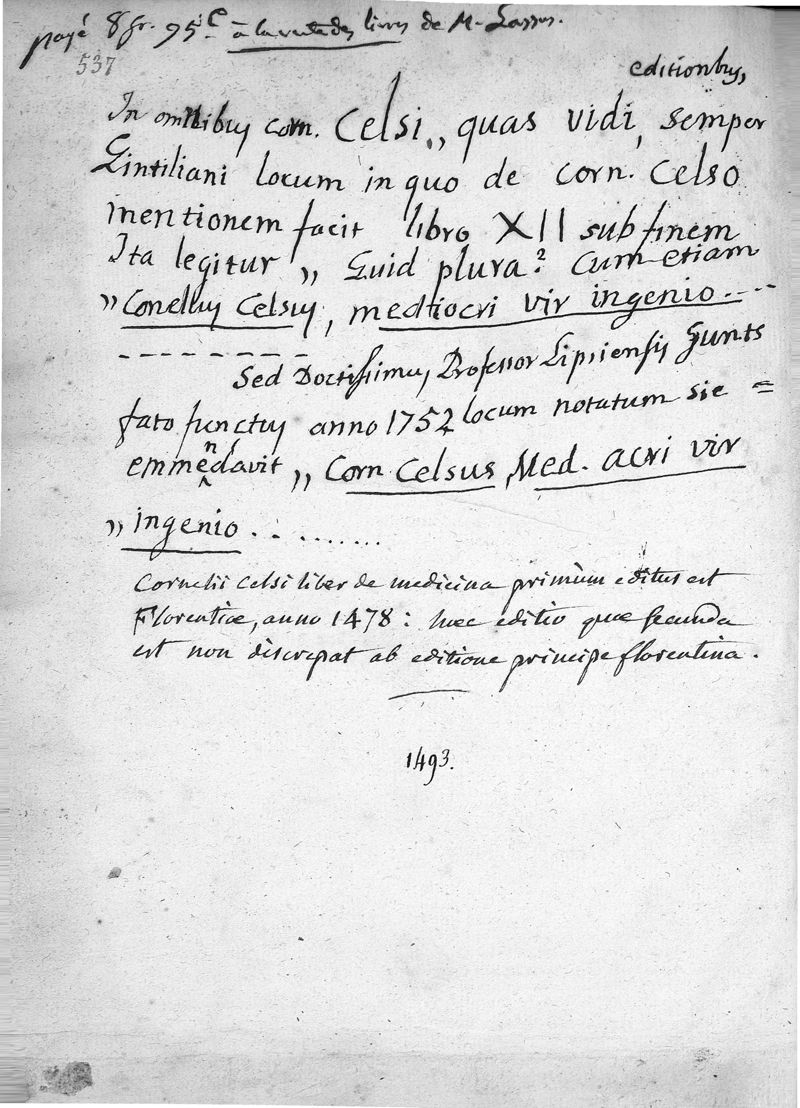 payé 8 fr. 95 c à la vente des livres de M. Lassus.
537
editionbus,
In omnibus corn. Celsi,, quas vidi, semper
Quintiliani locum in quo de corn. Celso
mentionem facit libro XII sub finem
Ita legitur ,, Quid plura? Cum etiam
,, Conellus Celsus, mediocri vir ingenio.. --
- - - - - - - -
Sed Doctissimus, Professor Lipsiensis Gunts
fato functus anno 1752 locum notatum sic =
emmendavit ,, Corn Celsus, Med. acri vir
,, ingenio . . . . . . . . .
Cornelii Celsi liber de medicina primùm editus est
Florentiæ, anno 1478 : hæc editio quæ secunda
est non discrepat ab editione principe florentina.
1493.